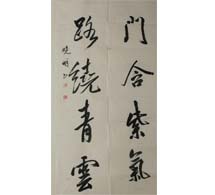 門含紫氣
路繞青雲